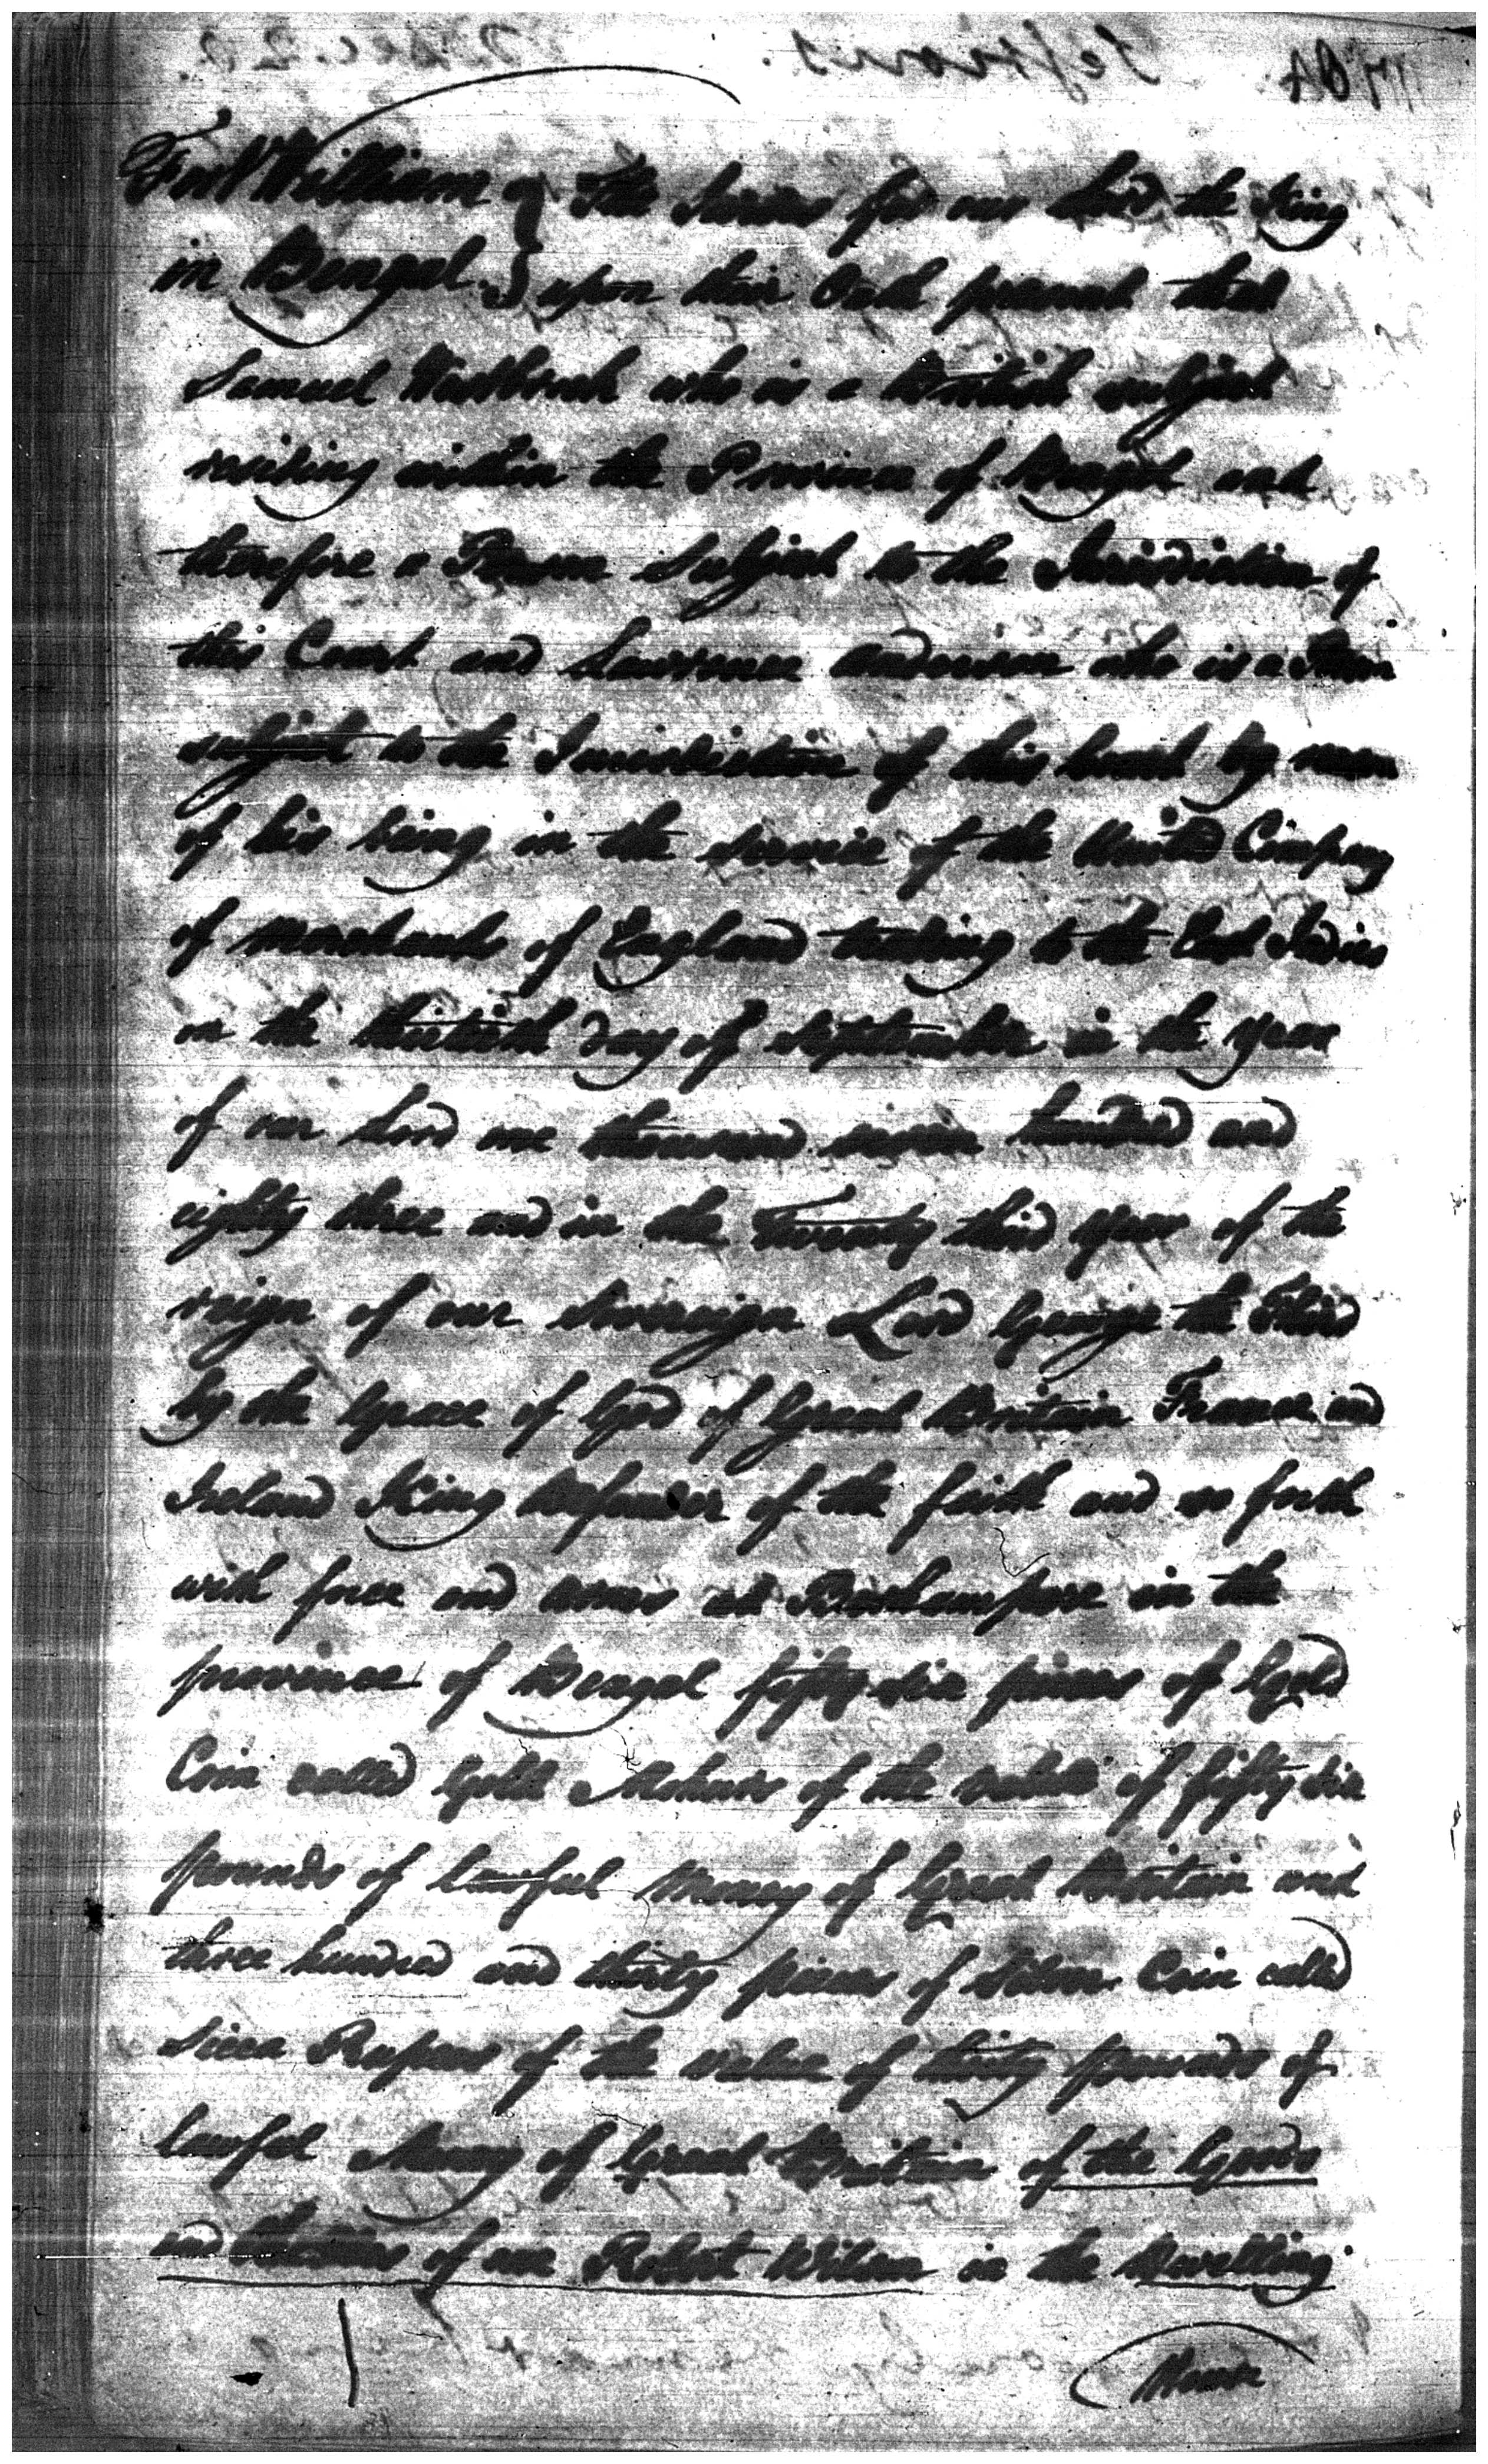 Fort William } The Jurors for our Lord the King
in Bengal } upon their Oath present that
Samuel who is a British subject
residing within the Province of Bengal and
therefore a Person Subject to the Jurisdiction of
this Court and Lawrence Anderson who is a Person
subject to the Jurisdiction of this Court by reason
of his being in the service of the United Company
of Merchants of England trading to the East Indies
on the thirtieth day of September in the year
of our Lord one thousand seven hundred and
eighty three and in the Twenty third year of the
reign of our Sovereign Lord George the Third
by the Grace of God of Great Britain France and
Ireland King Defender of the faith and so forth
with force and arms at Berhampore in the
province of Bengal fifty six pieces of Gold
Coin called Gold Mohurs of the value of fifty six
pounds of lawful Money of Great Britain and
three hundred and thirty pieces of Silver Coin called
Sicca Rupees of the value of thirty pounds of
lawful Money of Great Britain of the Goods
and Chattels of one Robert Wilson in the Dwelling
House